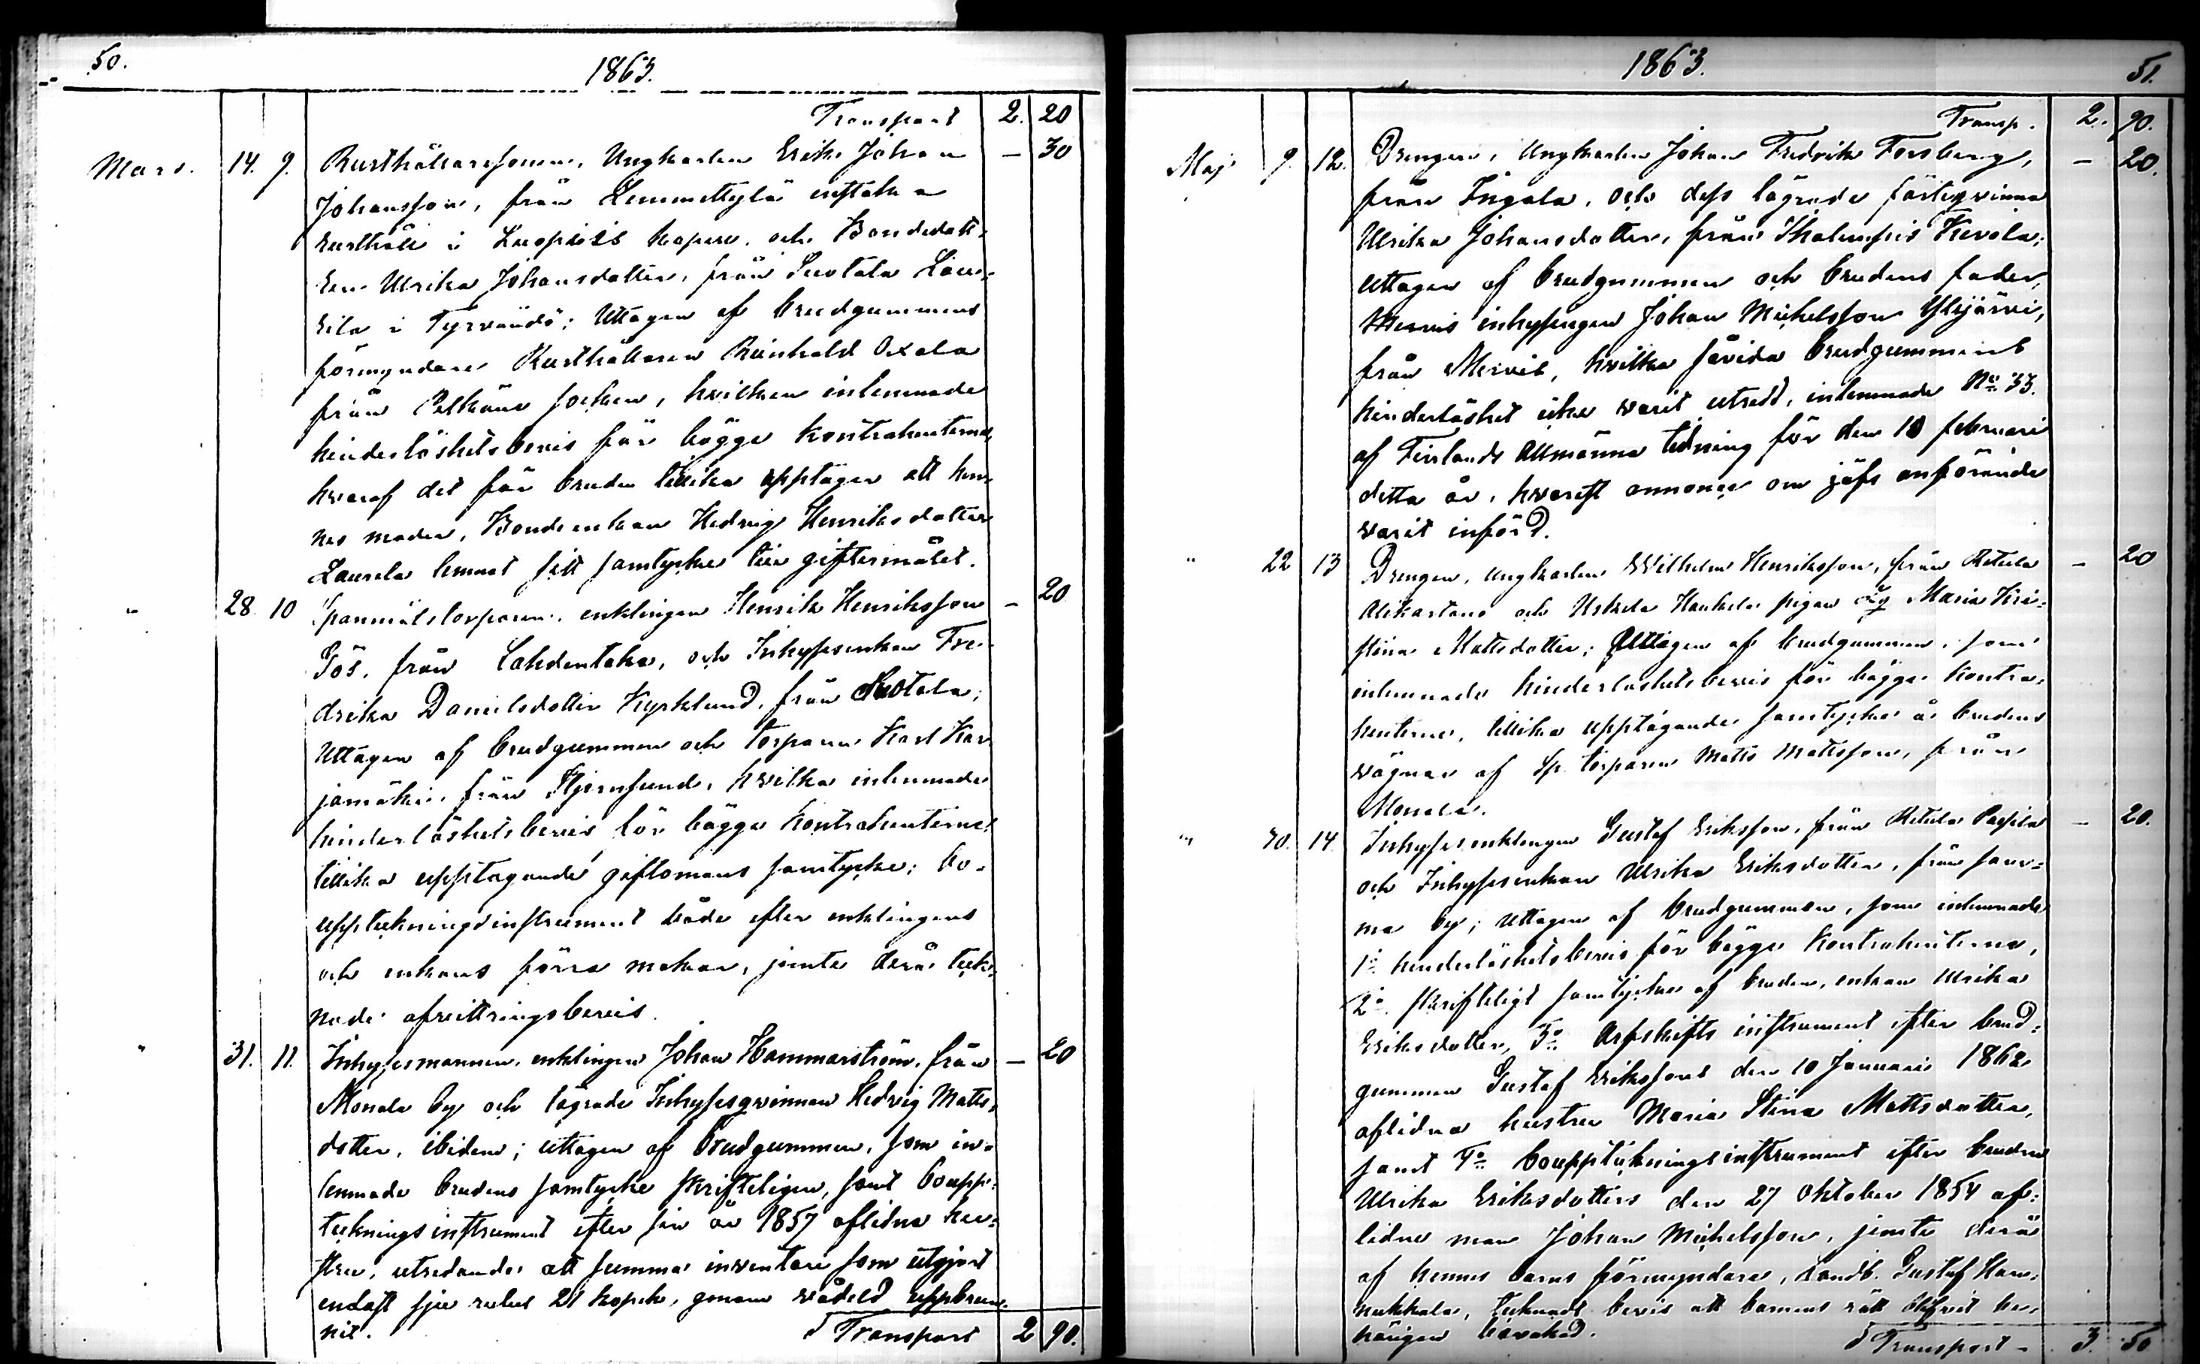 50.
1863.
Transport 2. 20
Mars. 14. 9. Rusthållaresonen, Ungkarlen Erik Johan — 30
Johansson, från Lemmettylä
rusthåll i Luopiois kapell, och Bondedott-
ren Ulrika Johansdotter, från Suotala Lau-
rila i Tyrvändö; Uttagen af brudgummens
förmyndare Rusthållaren Reinhold Oxala
från Pelkäne socken, hvilken inlemnade
hinderlöshetsbevis för bägge kontrahenterna,
hvaraf det för bruden tillika upptager att hen-
nes moder, Bondeenkan Hedvig Henriksdotter
Laurila lemnat sitt samtycke till giftermålet.
" 28. 10 Spanmålstorparen, enklingen Henrik Henriksson — 20
Gös, från Lahdentaka, och Inhysesenkan Fre-
drika Danielsdotter Kyrklund, från Suotala;
Uttagen af brudgummen och torparen Karl Kar-
jamäki, från Stjernsund, hvilka inlemnade
hinderlöshetsbevis för bägge kontrahenterne,
tillika upptagande giftomans samtycke; bo-
uppteckningsinstrument både efter enklingens
och enkans förra makar, jemte derå teck-
nade afvittringsbevis.
" 31. 11. Inhysesmannen, enklingen Johan Hammarström, från — 20
Monala by och lägrade Inhysesqvinnan Hedvig Matts-
dotter, ibidem; uttagen af brudgummen, som in-
lemnade brudens samtycke skrifteligen, samt bouppe-
tecknings instrument efter sin år 1857 aflidna hu-
stru, utredande att summa inventari som utgjort
endast sju rubel 21 kopek, genom vådeld uppbrun-
nit.
Transport 2 90.
1863.
51.
Transp. 2. 90.
Maj 9. 12. Drengen, Ungkarlen Johan Fredrik Forsberg, — 20.
från Ingala, och dess lägrade fästeqvinna
Ulrika Johansdotter, från Skalunpis Kevola;
uttagen af brudgummen och brudens fader,
inhysingen Johan Michelsson Ylijärvi,
från Mervis, hvilka såvida brudgummens
hinderlöshet icke varit utredd, inlemnade No 33.
af Finlands Allmänna tidning för den 10 februari
detta år, hvarest annonce om jäfs anförande
varit införd.
" 22 13 Drengen, ungkarlen Wilhelm Henriksson, från Retula — 20
Alikartano och Uskela Haukela pigan Maria Kri-
stina Mattsdotter; Uttagen af brudgummen, som
inlemnade hinderlöshetsbevis för bägge kontra-
henterne, tillika upptagande samtycke å brudens
vägnar af Sp. torparen Matts Mattsson, från
Monala.
" 30. 14. Inhysesenklingen Gustaf Eriksson, från Retula — 20.
och Inhysesenkan Ulrika Eriksdotter, från sam-
ma by; uttagen af brudgummen, som inlemnade
1o hinderlöshetsbevis för bägge kontrahenterna,
2o skrifteligt samtycke af bruden, enkan Ulrika
Eriksdotter, 3o Arfskifts instrument efter brud-
gummen Gustaf Erikssons den 10 Januari 1862
aflidna hustru Maria Stina Mattsdotter,
samt 4o bouppteckningsinstrument efter bruden
Ulrika Eriksdotters den 27 Oktober 1854 af-
lidne man Johan Michelsson, jemte derå
af hennes barns förmyndare, Landb. Gustaf Han-
nukkala, tecknadt bevis att barnens rätt blifvit be-
hörigen bevakad.
Transport — 3. 50